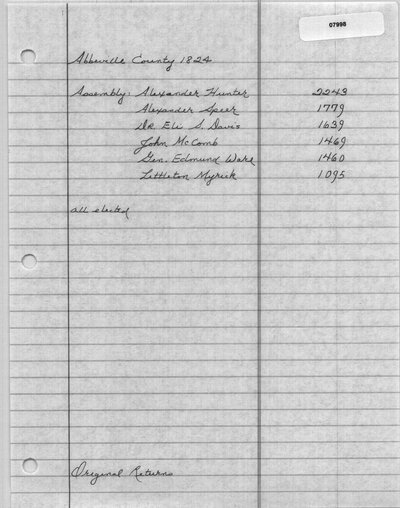 07998
Abbeville County 1824
Assembly: Alexander Hunter 2243
Alexander Speer 1779
Dr. Eli S. Davis 1639
John McComb 1469
Gen. Edmund Ware 1460
Littleton Myrick 1095
all elected
Original Returns